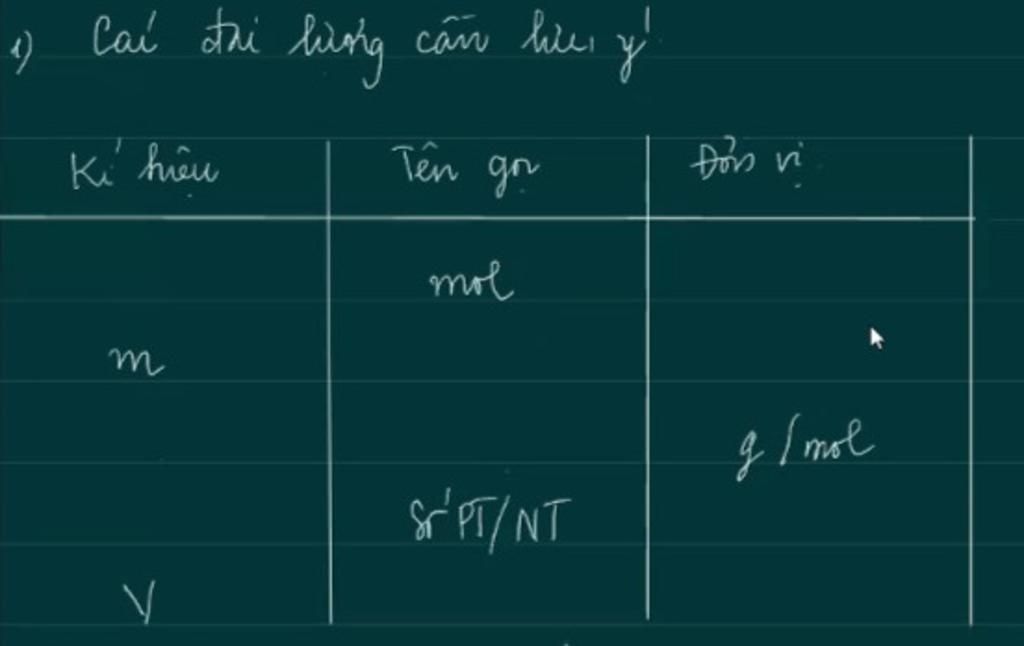 1) Các đại lượng cần lưu ý
Kí hiệu Tên gọi Đơn vị
mol
m
g/mol
Số PT/NT
V